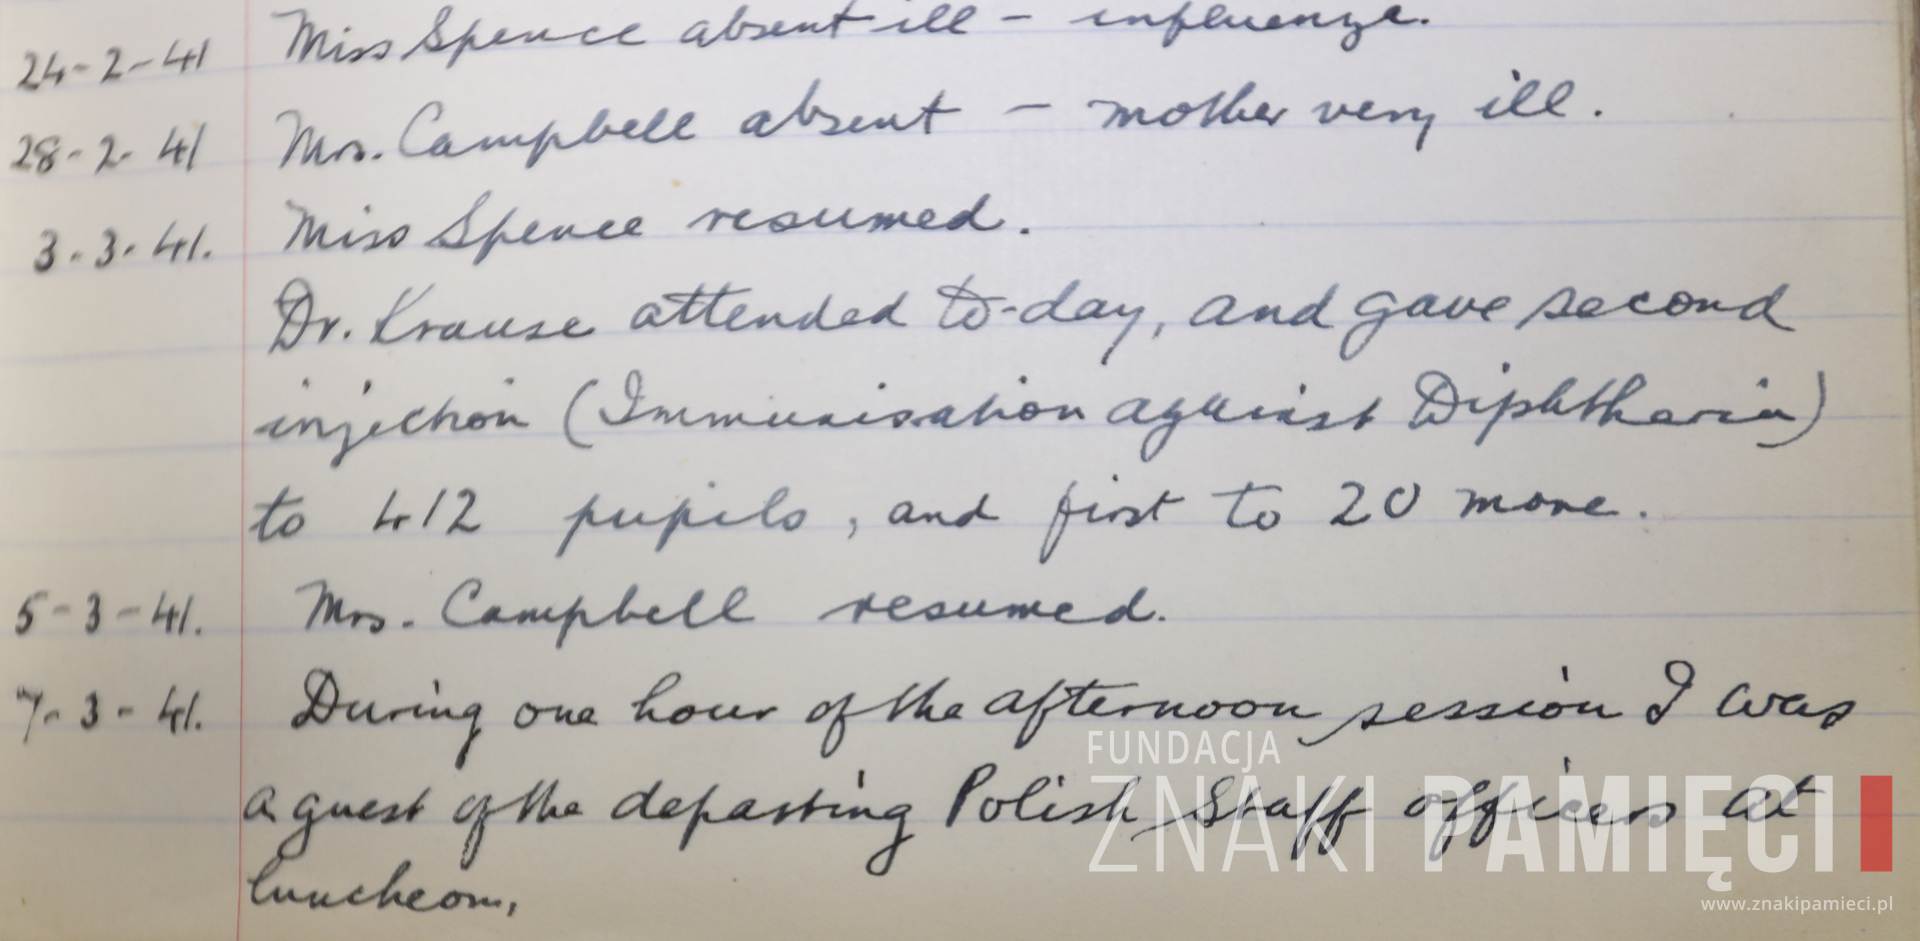 24-2-41 Miss Spence absent ill – influenza.
28-2-41 Mrs. Campbell absent – mother very ill.
3-3-41. Miss Spence resumed.
Dr. Krause attended to-day, and gave second
injection (Immunisation against Diphtheria)
to 412 pupils, and first to 20 more.
5-3-41. Mrs. Campbell resumed.
7-3-41. During one hour of the afternoon session I was
a guest of the departing Polish Staff officers at
luncheon.
FUNDACJA
ZNAKI PAMIĘCI
www.znakipamieci.pl